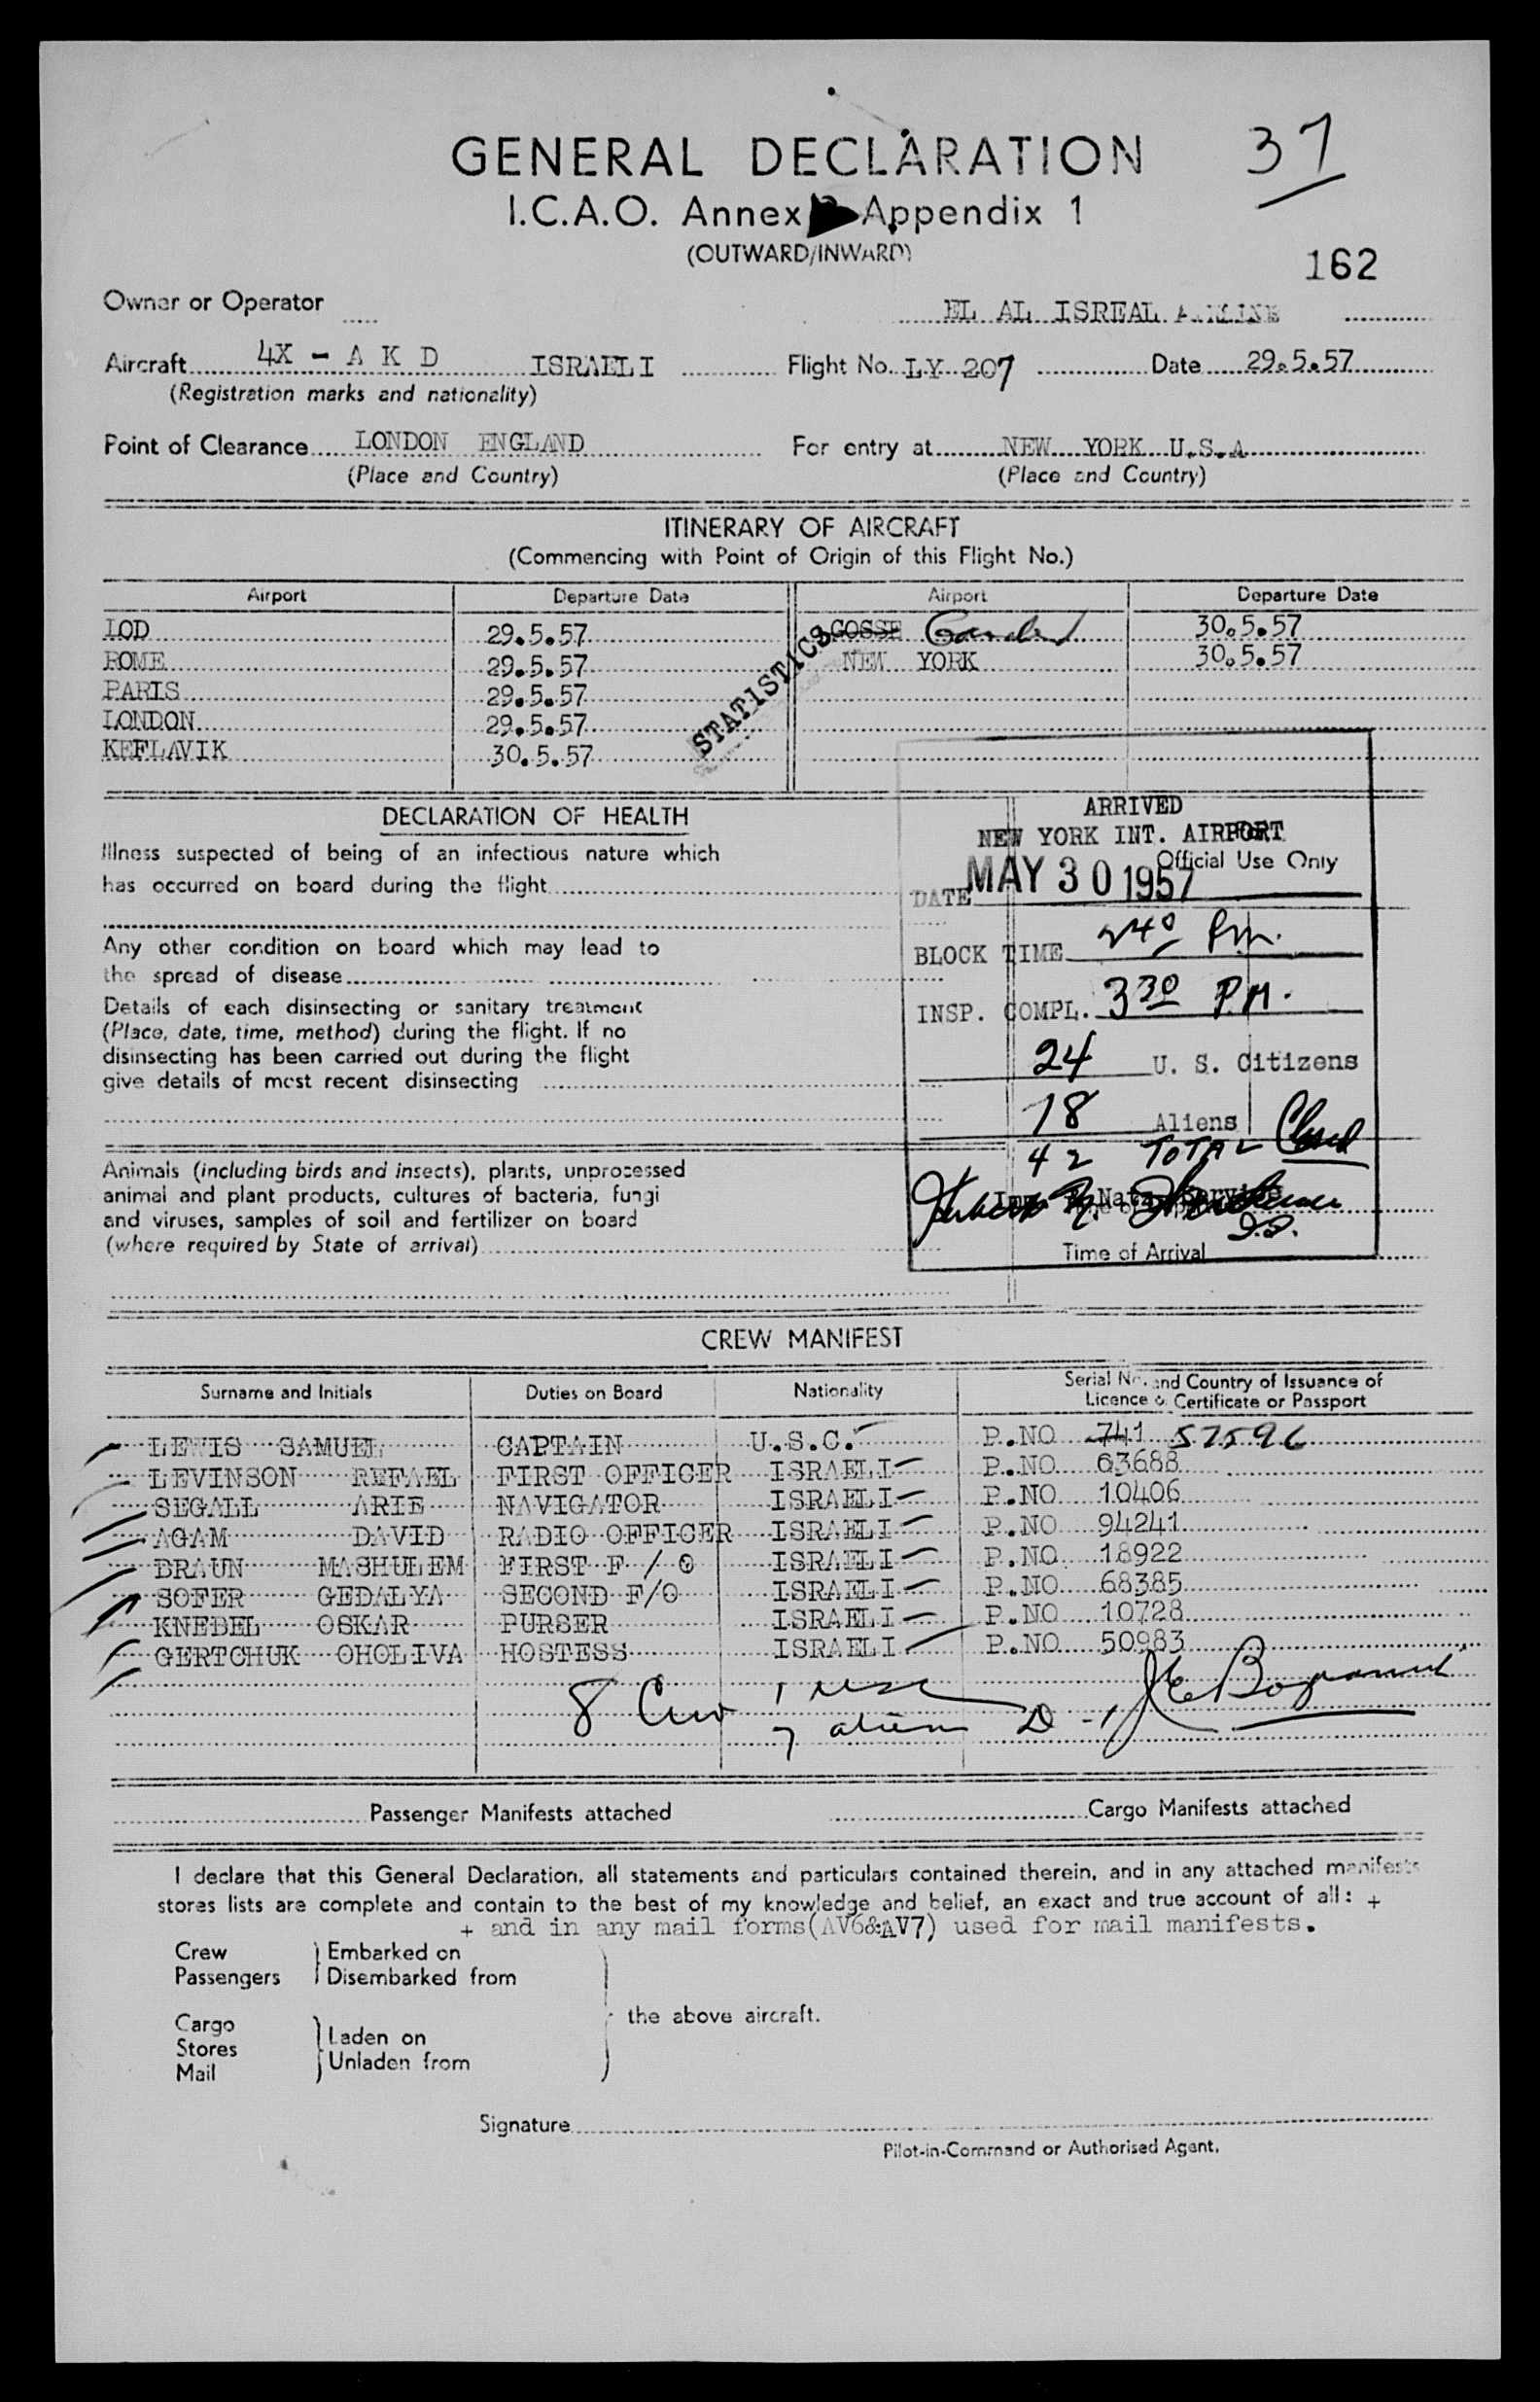 GENERAL DECLARATION
37
I.C.A.O. Annex Appendix 1
(OUTWARD/INWARD)
162
Owner or Operator EL AL ISREAL
Aircraft 4X - A K D ISRAELI Flight No. LY 207 Date 29.5.57
(Registration marks and nationality)
Point of Clearance LONDON ENGLAND For entry at NEW YORK U.S.A
(Place and Country) (Place and Country)
ITINERARY OF AIRCRAFT
(Commencing with Point of Origin of this Flight No.)
Airport Departure Date Airport Departure Date
LOD 29.5.57 GOSSE 30.5.57
ROME 29.5.57 NEW YORK 30.5.57
PARIS 29.5.57
LONDON 29.5.57
KEFLAVIK 30.5.57
STATISTICS
DECLARATION OF HEALTH
Illness suspected of being of an infectious nature which
has occurred on board during the flight
Any other condition on board which may lead to
the spread of disease
Details of each disinsecting or sanitary treatment
(Place, date, time, method) during the flight. If no
disinsecting has been carried out during the flight
give details of most recent disinsecting
Animals (including birds and insects), plants, unprocessed
animal and plant products, cultures of bacteria, fungi
and viruses, samples of soil and fertilizer on board
(where required by State of arrival)
ARRIVED
NEW YORK INT. AIRPORT
Official Use Only
DATE MAY 30 1957
BLOCK TIME 240 Pm.
INSP. COMPL. 330 P.M.
24 U. S. Citizens
18 Aliens
42 TOTAL
Time of Arrival
CREW MANIFEST
Surname and Initials Duties on Board Nationality Serial No. and Country of Issuance of
Licence or Certificate or Passport
LEWIS SAMUEL CAPTAIN U.S.C. P.NO 741 57596
LEVINSON REFAEL FIRST OFFICER ISRAELI P.NO 63688
SEGALL ARIE NAVIGATOR ISRAELI P.NO 10406
AGAM DAVID RADIO OFFICER ISRAELI P.NO 94241
BRAUN MASHULEM FIRST F / O ISRAELI P.NO 18922
SOFER GEDALYA SECOND F/O ISRAELI P.NO 68385
KNEBEL OSKAR PURSER ISRAELI P.NO 10728
GERTCHUK OHOLIVA HOSTESS ISRAELI P.NO 50983
8 Crew 1 usc
7 alien D -1
Passenger Manifests attached Cargo Manifests attached
I declare that this General Declaration, all statements and particulars contained therein, and in any attached manifests
stores lists are complete and contain to the best of my knowledge and belief, an exact and true account of all: +
+ and in any mail forms(AV6&AV7) used for mail manifests.
Crew Embarked on
Passengers Disembarked from
the above aircraft.
Cargo
Stores Laden on
Mail Unladen from
Signature
Pilot-in-Command or Authorised Agent.